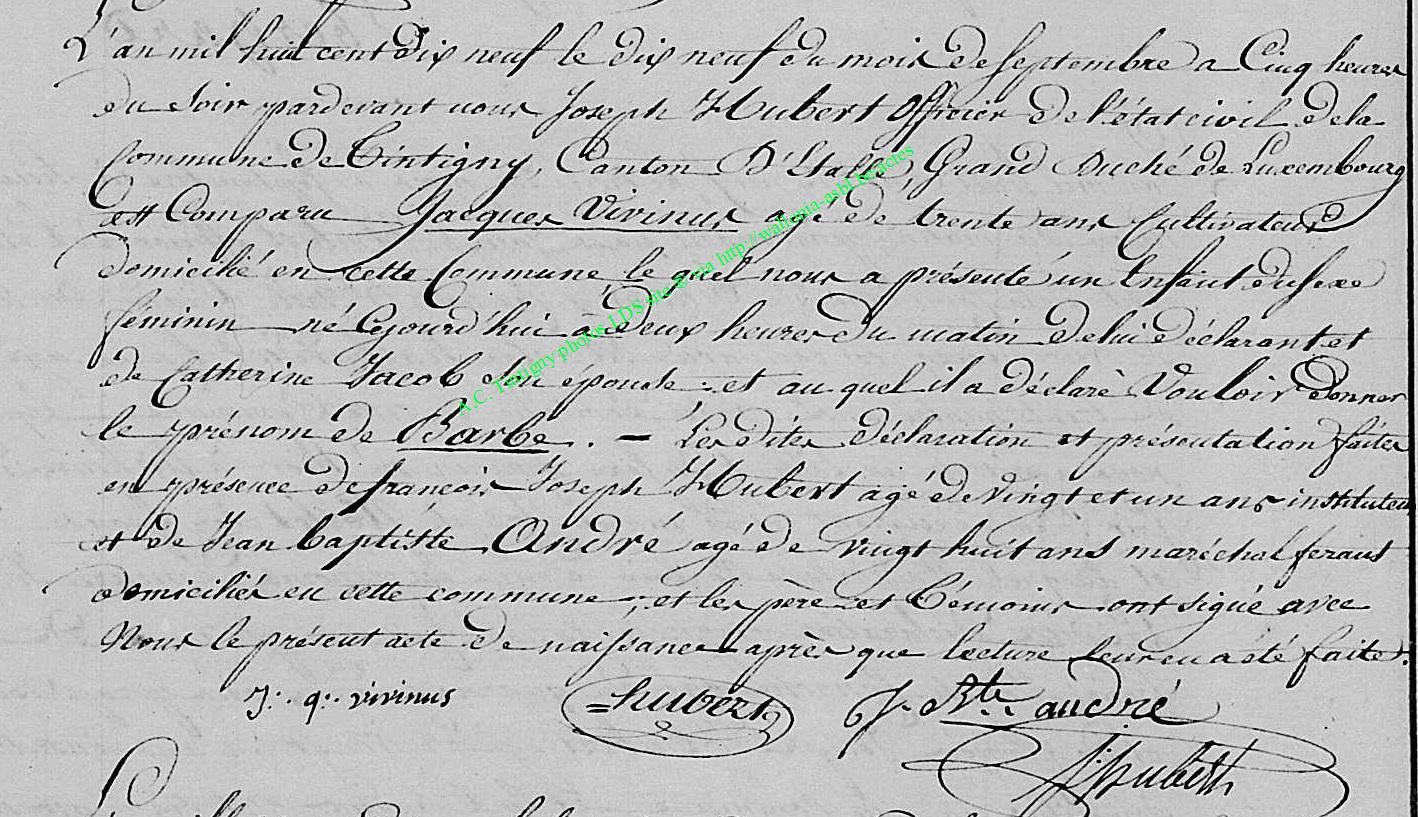 L'an mil huit cent dix neuf le dix neuf du mois de septembre a Cinq heures
du soir pardevant nous Joseph Hubert Officier de l'état civil de la
Commune de Tintigny, Canton D'Etalle, Grand Duché de Luxembourg
est Comparu Jacques Vivinus agé de trente ans Cultivateur
domicilié en cette Commune, le quel nous a présenté un Enfant du sexe
féminin né Cejourd'hui à deux heures du matin de lui déclarant et
de Catherine Jacob son épouse; et au quel il a déclaré Vouloir donner
le prénom de Barbe. — Les dites déclaration et présentation faites
en présence de françois Joseph Hubert agé de vingt et un ans instituteur
et de Jean baptiste André agé de vingt huit ans maréchal ferant
domiciliés en cette commune; et les père et témoins ont signé avec
Nous le présent acte de naissance après que lecture leur en a été faite.
J. q. vivinus hubert J. Bte. andré
hubert
A.C. Tintigny photos LDS site geta http://wallonia-asbl.be/actes